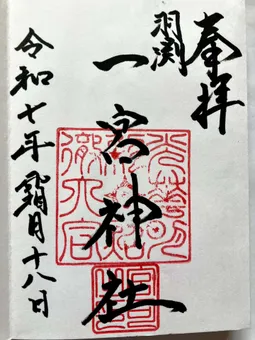 奉拝
羽渕
一宮神社
令和七年霜月十八日